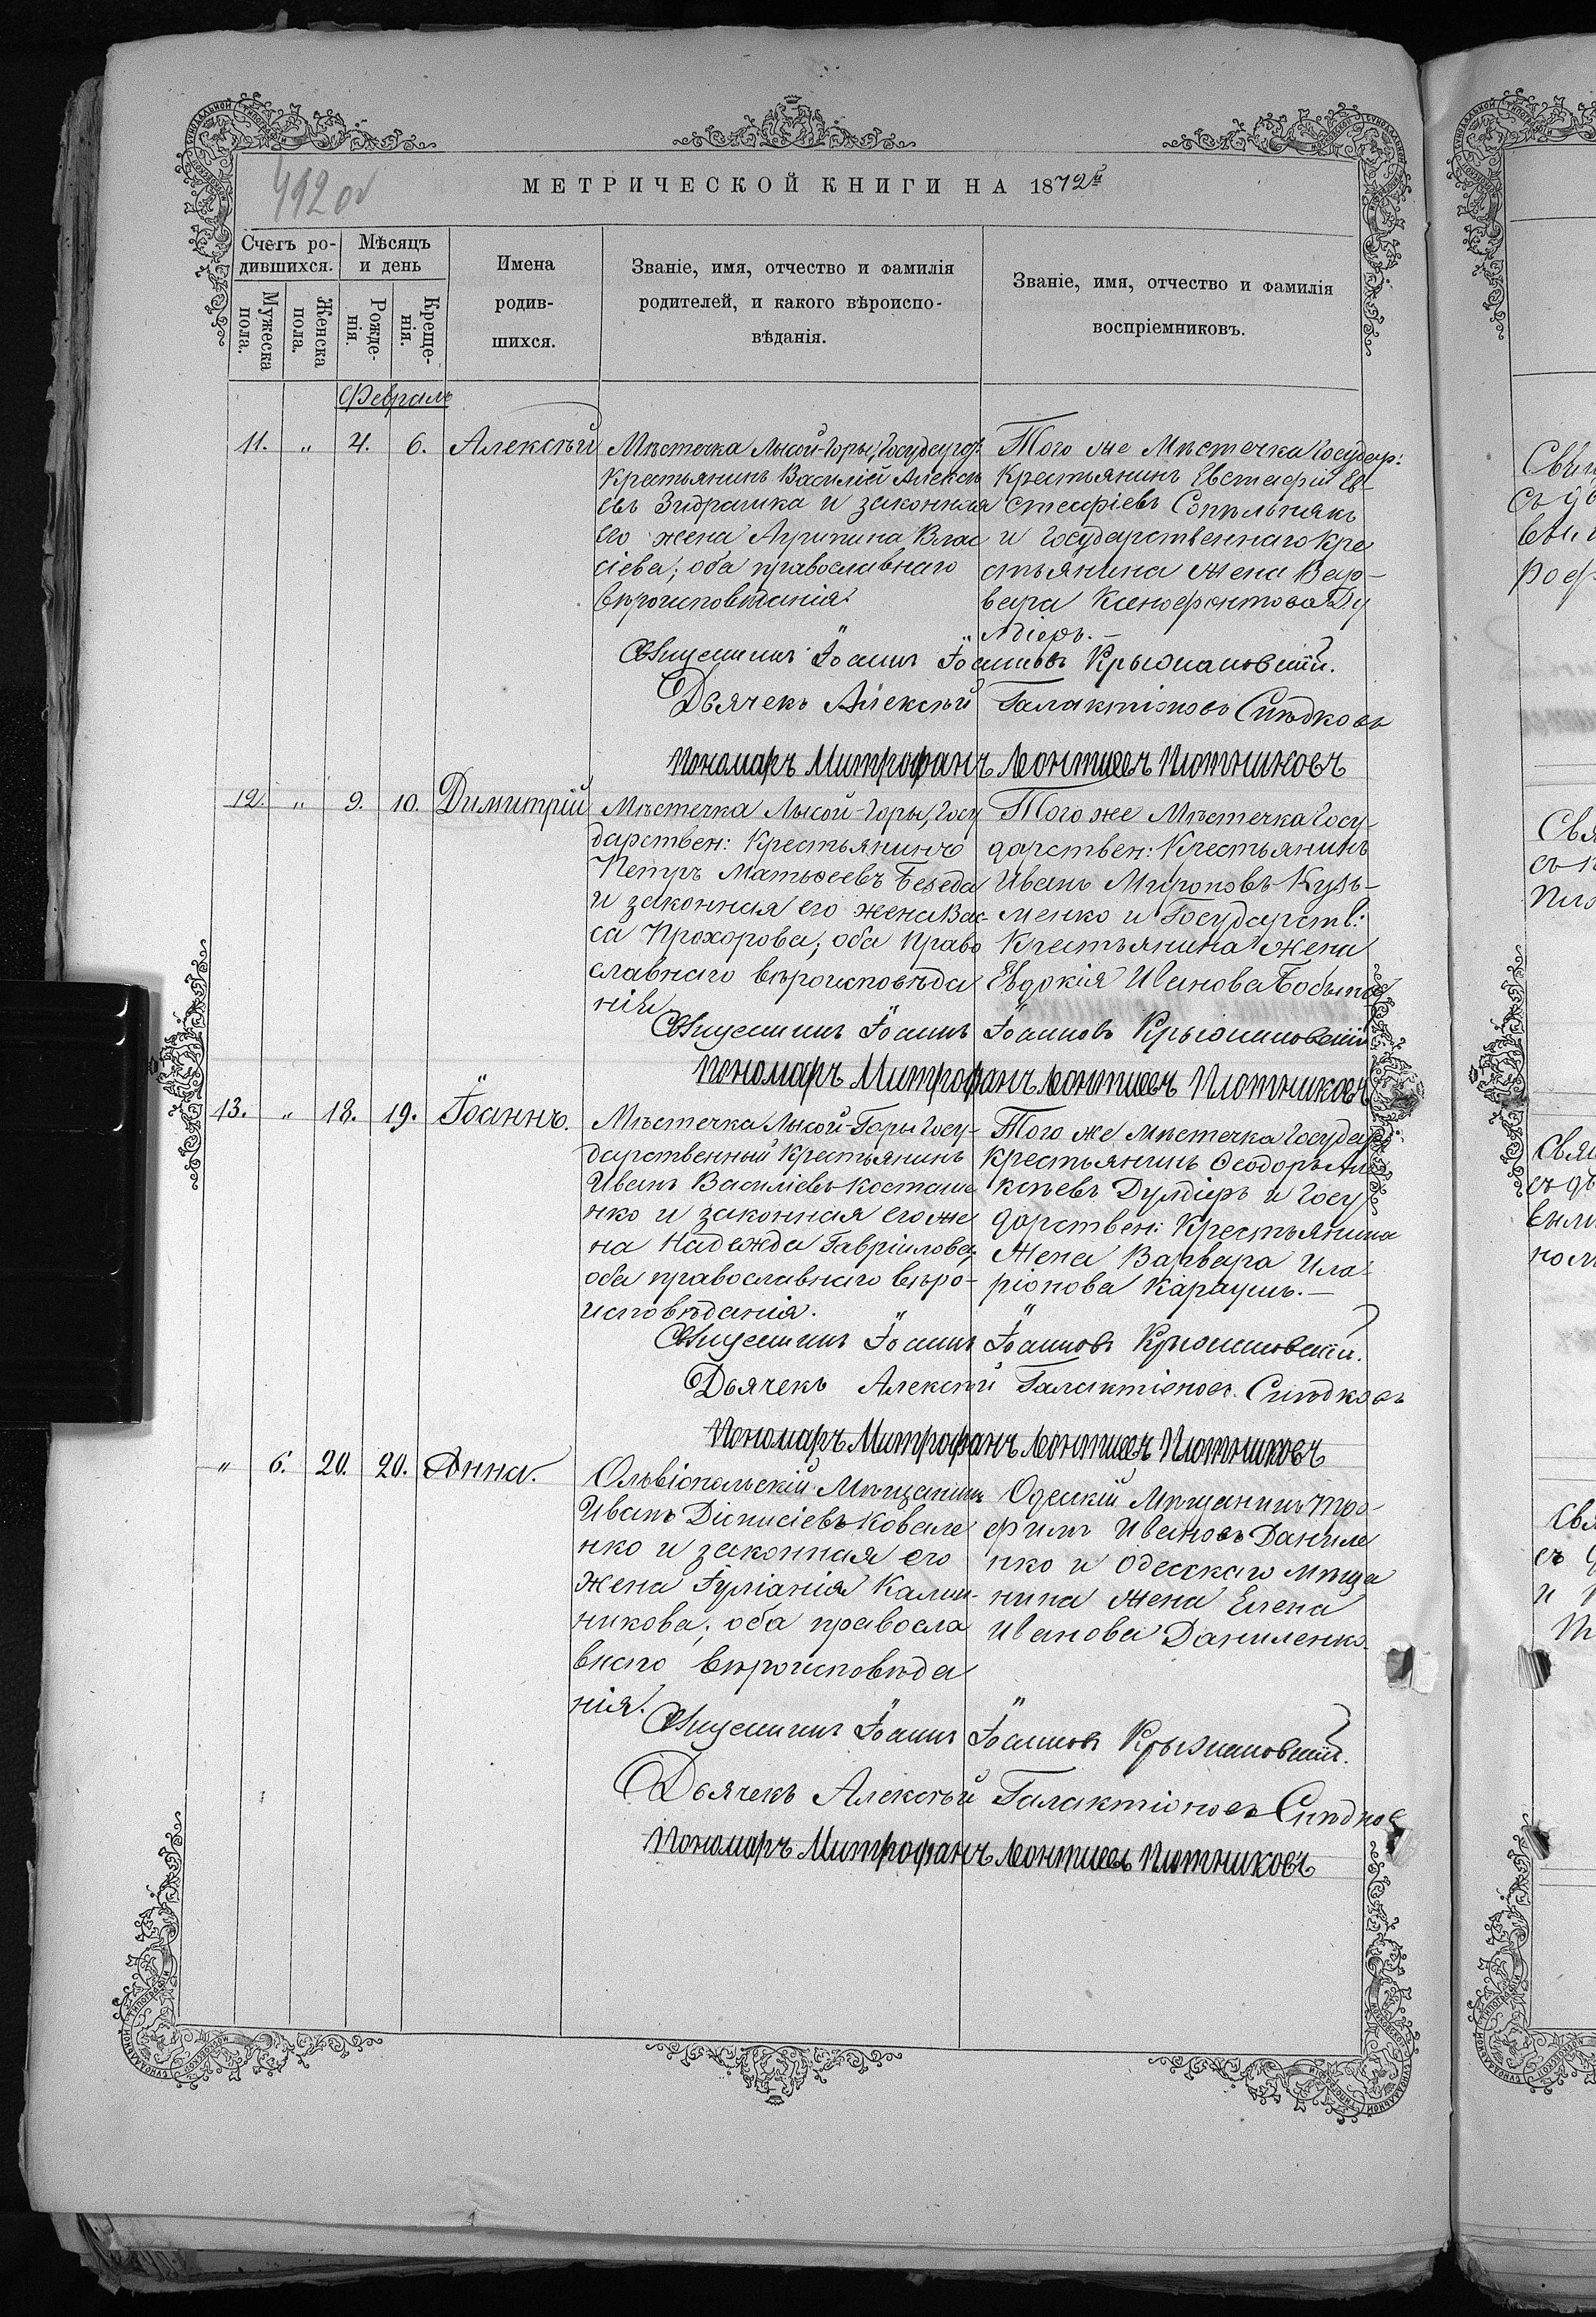 412 об
МЕТРИЧЕСКОЙ КНИГИ НА 1872й
Счетъ ро-
дившихся.
Мужеска
пола.
Женска
пола.
Мѣсяцъ
и день
Рожде-
нія.
Креще-
нія.
Имена
родив-
шихся.
Званіе, имя, отчество и фамилія
родителей, и какого вѣроиспо-
вѣданія.
Званіе, имя, отчество и фамилія
воспріемниковъ.
Февраль
11. „ 4. 6. Алексѣй
Мѣстечка Лысой-Горы, Государ:
Крестьянинъ Василій Алексѣ
евъ Зидрашка и законная
его жена Агрипина Влас
сіева; оба православнаго
вѣроисповѣданія.
Того же Мѣстечка Государ:
Крестьянинъ Евстафій Ев-
стафіевъ Сопѣльнякъ
и Государственнаго Кре
стьянина Жена Вар-
вара Ксенофонтова Ду
лдіеръ.-
Священникъ Іоаннъ Іоанновъ Крыжановскій.
Дьячекъ Алексѣй Галактіоновъ Синдковъ
Пономаръ Митрофанъ Леонтиевъ Плотниковъ
12. „ 9. 10. Димитрій
Мѣстечка Лысой-Горы, Госу
дарствен: Крестьянинъ
Петръ Матѳеевъ Беседа
и законная его жена Вас-
са Прохорова; оба право
славнаго вѣроисповѣда
нія
Того же Мѣстечка Госу-
дарствен: Крестьянинъ
Иванъ Мироновъ Кузь-
менко и Государств:
Крестьянина Жена
Евдокія Иванова
Священникъ Іоаннъ Іоанновъ Крыжановскій
Пономаръ Митрофанъ Леонтиевъ Плотниковъ
13. „ 18. 19. Іоаннъ.
Мѣстечка Лысой-Горы Госу-
дарственный Крестьянинъ
Иванъ Василіевъ Косташе
нко и законная его же
на Надежда Гавріилова;
оба православнаго вѣро-
исповѣданія.
Того же мѣстечка Государ
Крестьянинъ Ѳеодоръ Але
ксѣевъ Дулдіеръ и Госу
дарствен: Крестьянина
Жена Варвара Ила-
ріонова Караушъ.-
Священникъ Іоаннъ Іоанновъ Крыжановскій.
Дьячекъ Алексѣй Галактіоновъ Синдковъ
Пономаръ Митрофанъ Леонтиевъ Плотниковъ
„ 6. 20. 20. Анна.
Ольвіопольскій Мѣщанинъ
Иванъ Діонисіевъ Ковале
нко и законная его
Жена Іуліанія Калин-
никова; оба правосла
внаго вѣроисповѣда
нія.
Одескій Мѣщанинъ Тро-
фимъ Ивановъ Даниле
нко и Одесскаго Мѣща
нина Жена Елена
Иванова Даниленко.
Священникъ Іоаннъ Іоанновъ Крыжановскій.
Дьячекъ Алексѣй Галактіоновъ Синдков
Пономаръ Митрофанъ Леонтиевъ Плотниковъ